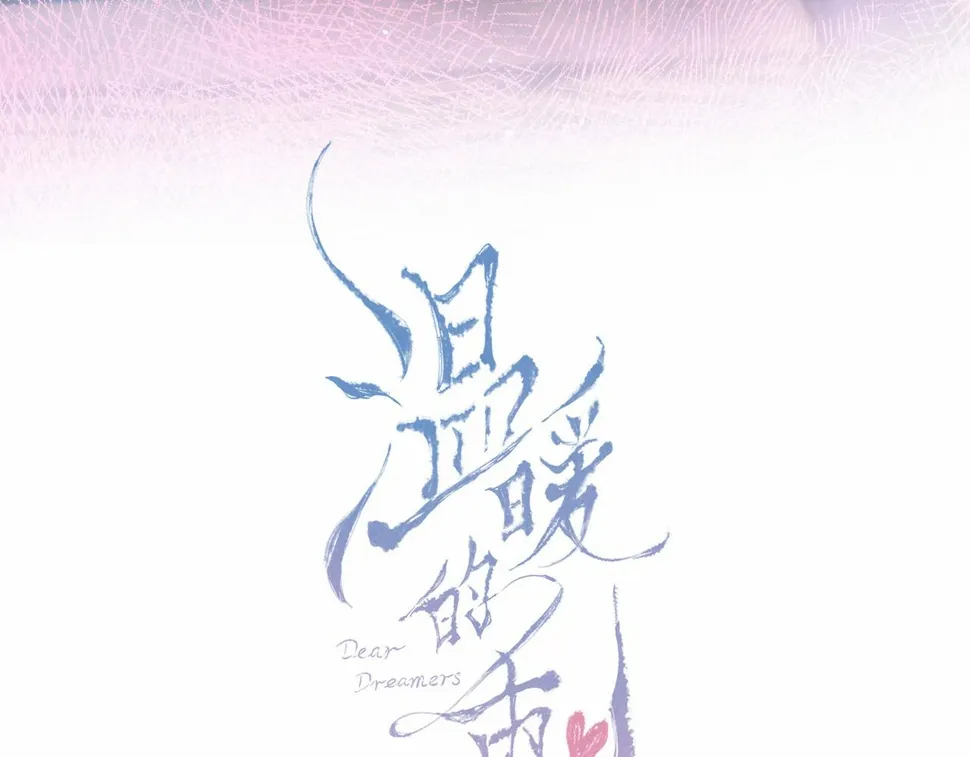 温暖的
Dear
Dreamers